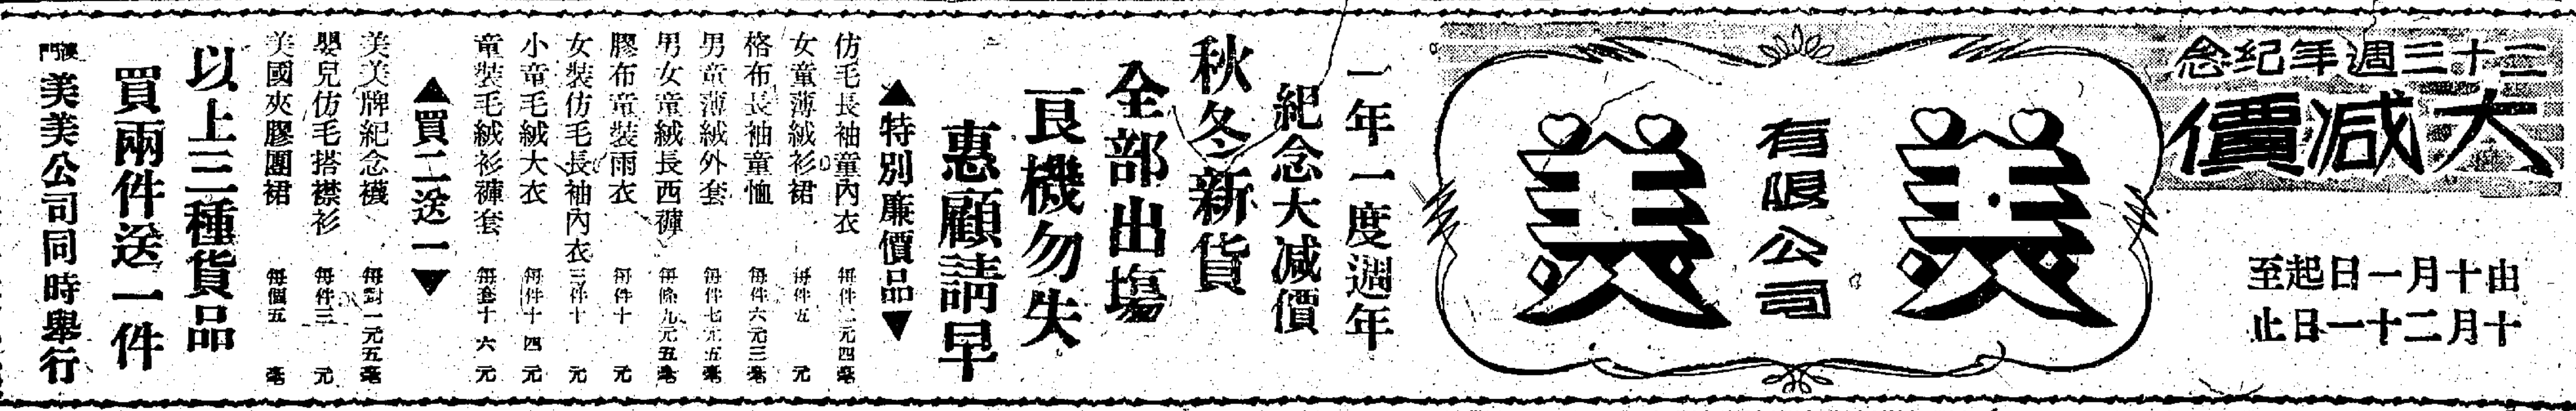 三十三週年紀念
大減價
由十月一日起至
十月二十一日止
美美
有限公司
一年一度週年
紀念大減價
秋冬新貨
全部出塲
良機勿失
惠顧請早
▲特別廉價品▼
仿毛長袖童內衣 每件二元四毫
女童薄絨衫裙 每件五元
格布長袖童恤 每件六元三毫
男童薄絨外套 每件七元五毫
男女童絨長西褲 每條九元五毫
膠布童裝雨衣 每件十元
女裝仿毛長袖內衣 三件十元
小童毛絨大衣 每件十四元
童裝毛絨衫褲套 每套十六元
▲買二送一▼
美美牌紀念襪 每對一元五毫
嬰兒仿毛搭襟衫 每件三元
美國夾膠圍裙 每個五毫
以上三種貨品
買兩件送一件
澳門美美公司同時舉行